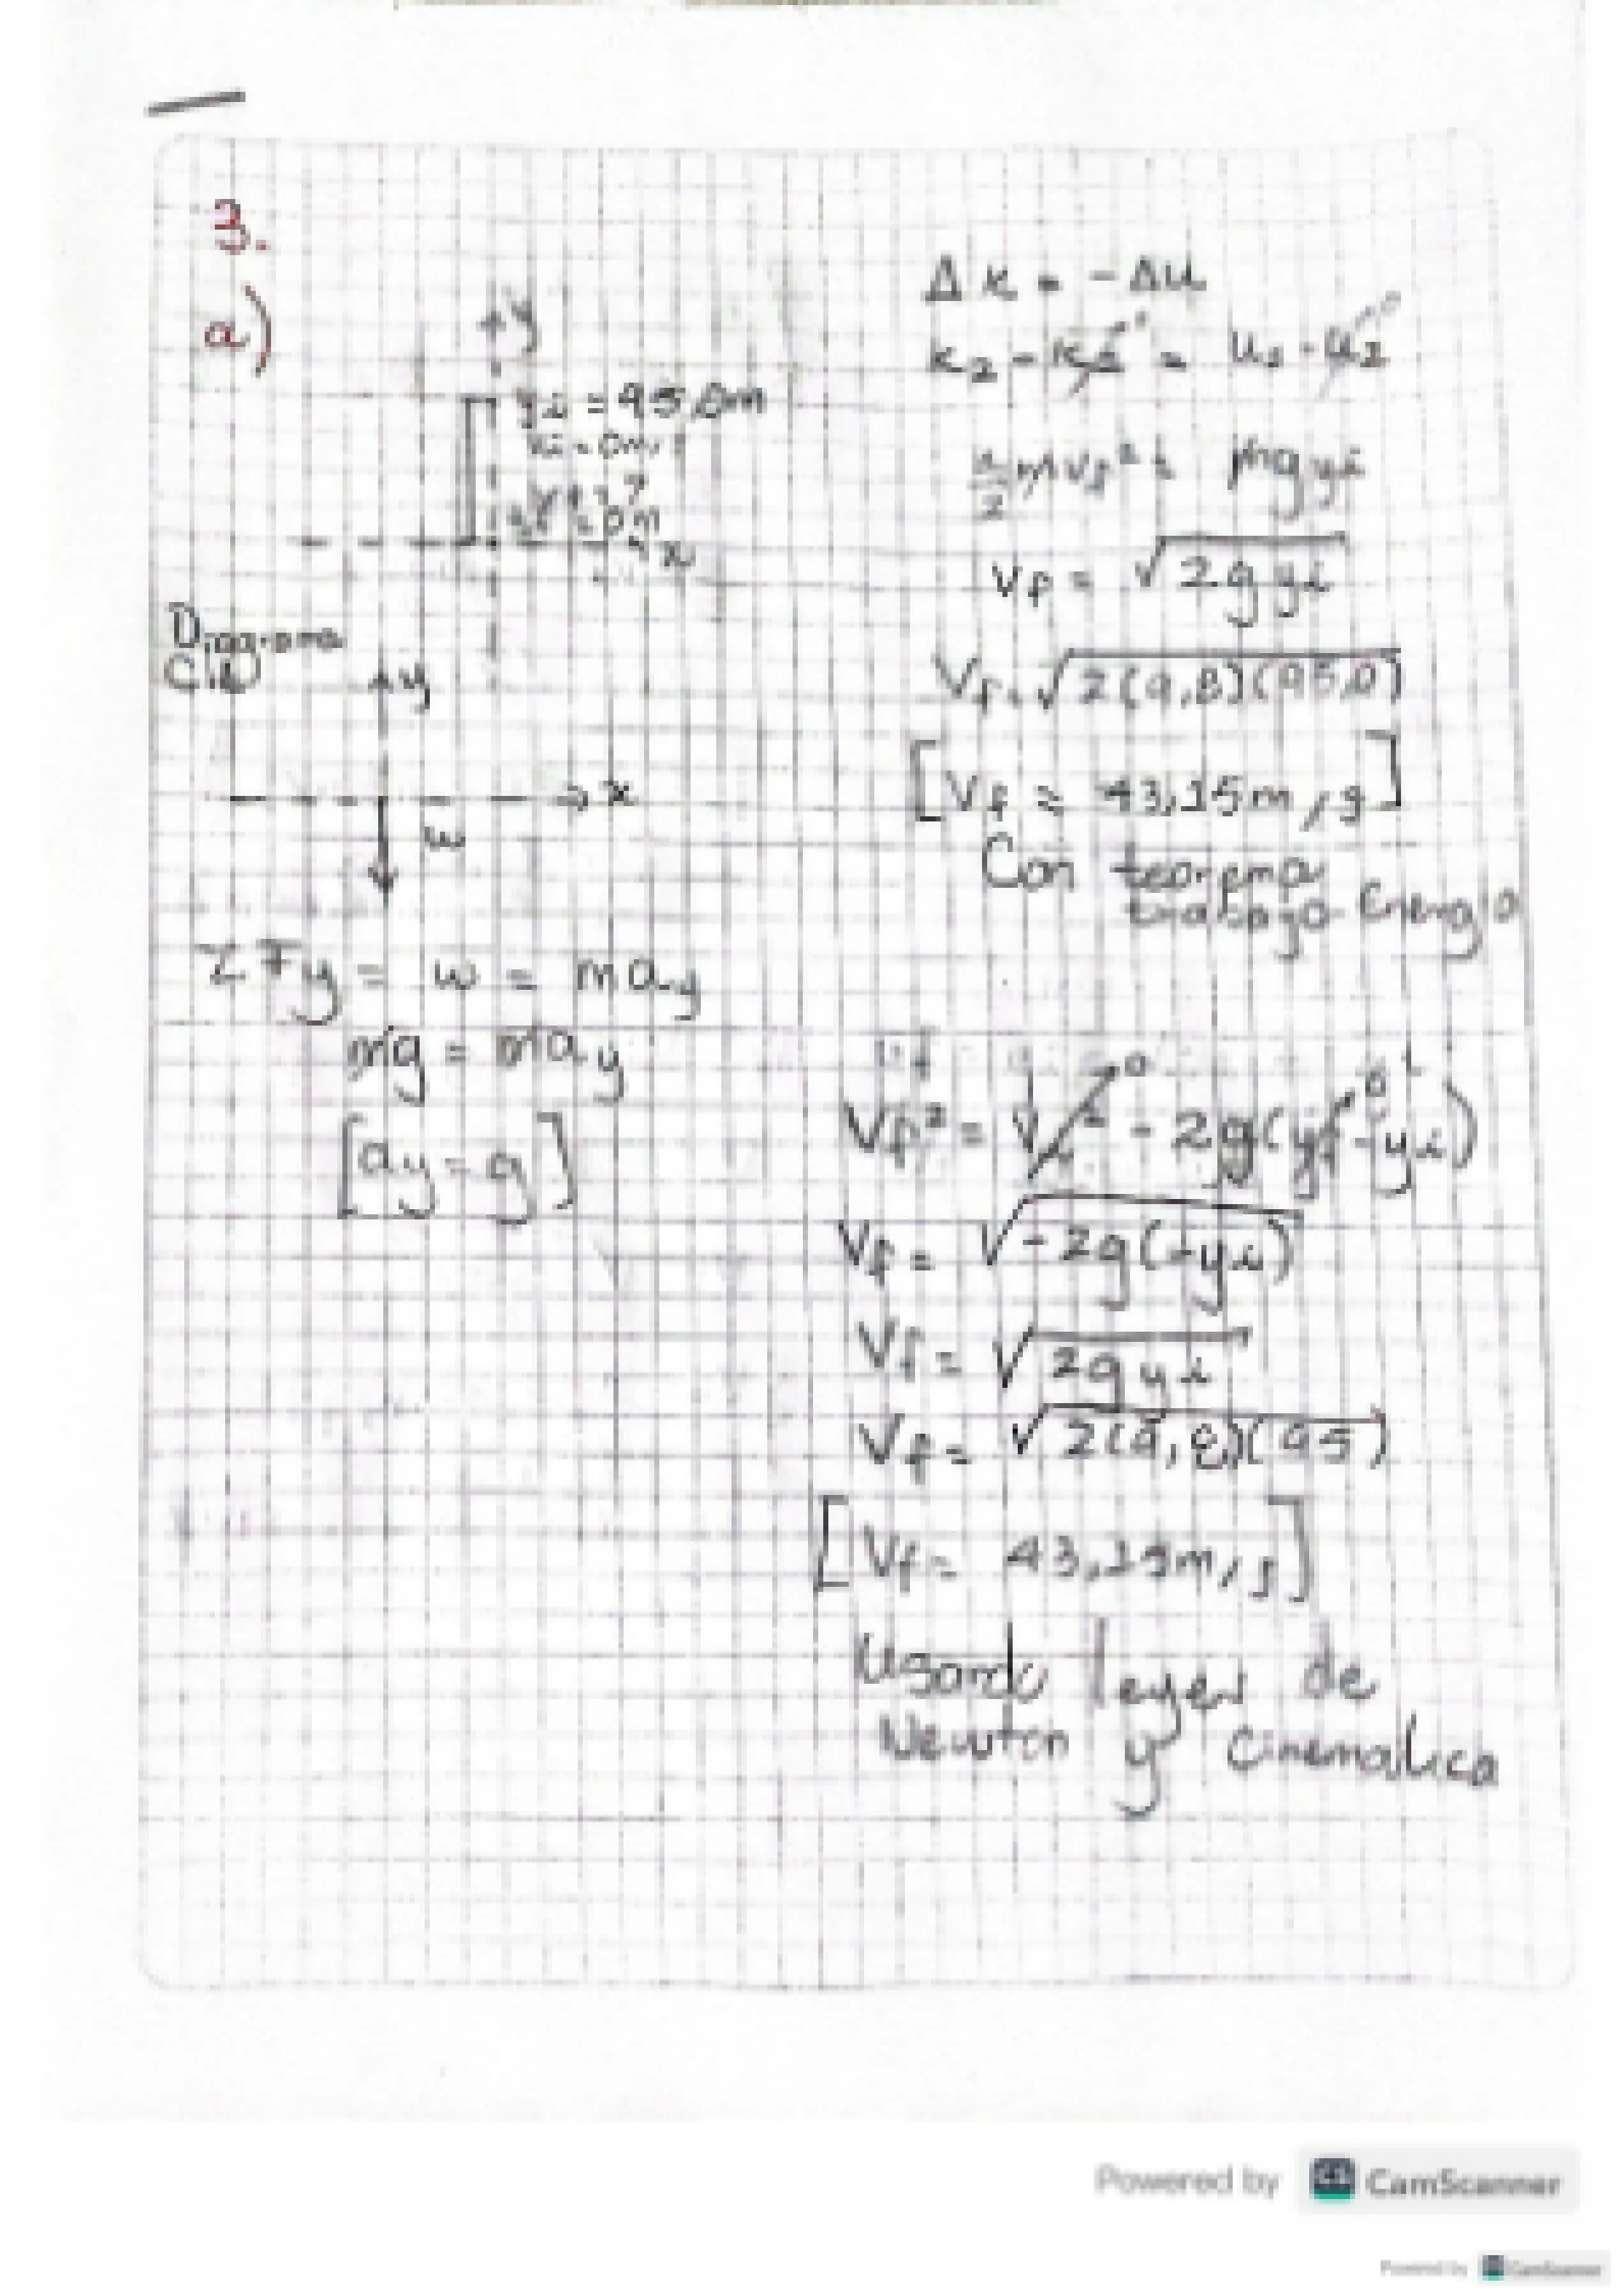 3.
a)
+y
yi = 95,0m
x
Diagrama
y
x
w
ΣFy = w = may
mg = may
[ay = g]
ΔK = -ΔU
K2 - K1 = U1 - U2
1/2 mvf² = mgyi
Vf = √2gyi
Vf = √2(9,8)(95,0)
[Vf = 43,15m/s]
Con teorema
trabajo-Energia
Vf² = Vi²⁰ - 2g(yf⁰ - yi)
Vf = √-2g(-yi)
Vf = √2gyi
Vf = √2(9,8)(95)
[Vf = 43,15m/s]
Usando leyes de
Newton y Cinematica
Powered by CS CamScanner
Powered by CamScanner